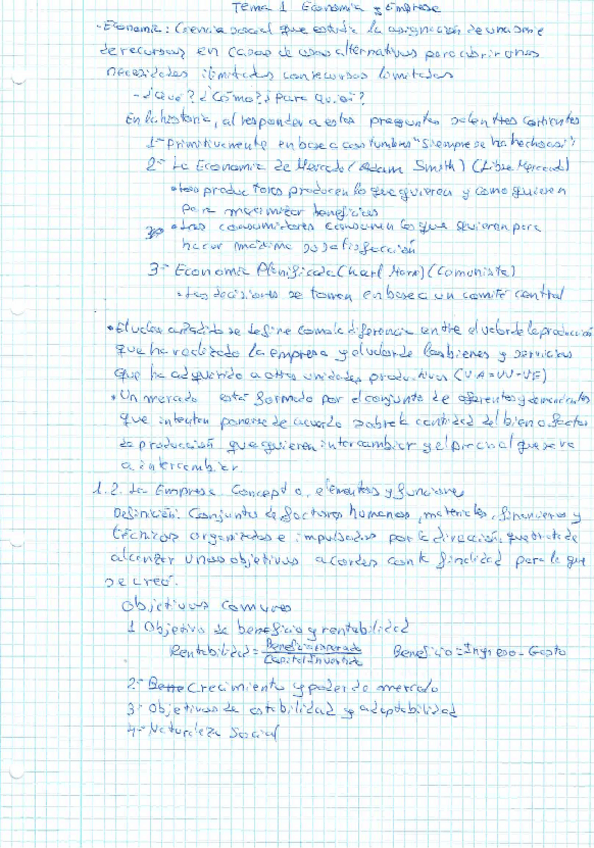 Tema 1 Economia y Empresa
- Economia: Ciencia social que estudia la asignación de una serie
de recursos en casos de usos alternativos para cubrir unas
necesidades ilimitadas con recursos limitados
- ¿Qué? ¿Cómo? ¿Para quién?
En la historia, al responder a estas preguntas salen tres corrientes
1- Primitivamente en base a costumbres "Siempre se ha hecho así"
2- La Economia de Mercado (Adam Smith) (Libre Mercado)
• Los productores producen lo que quieren y como quieren
para maximizar beneficios
• Los consumidores consumen los que quieran para
hacer máxima su satisfacción
3- Economia Planificada (Karl Marx) (Comunista)
• Las decisiones se toman en base a un comité central
• El valor añadido se define como la diferencia entre el valor de la producción
que ha realizado la empresa y el valor de los bienes y servicios
que ha adquirido a otras unidades productivas (VA=VV-VE)
• Un mercado está formado por el conjunto de oferentes y demandantes
que intentan ponerse de acuerdo sobre la cantidad del bien o factor
de producción que quieren intercambiar y el precio al que se va
a intercambiar
1.2. La Empresa. Concepto, elementos y funciones
Definición: Conjunto de factores humanos, materiales, financieros y
técnicos organizados e impulsados por la dirección, que trata de
alcanzar unos objetivos acordes con la finalidad para la que
se creó.
Objetivos comunes
1 Objetivo de beneficio y rentabilidad
Rentabilidad = Beneficio esperado / Capital Invertido Beneficio = Ingreso - Gasto
2- Crecimiento y poder de mercado
3- Objetivos de estabilidad y adaptabilidad
4- Naturaleza Social